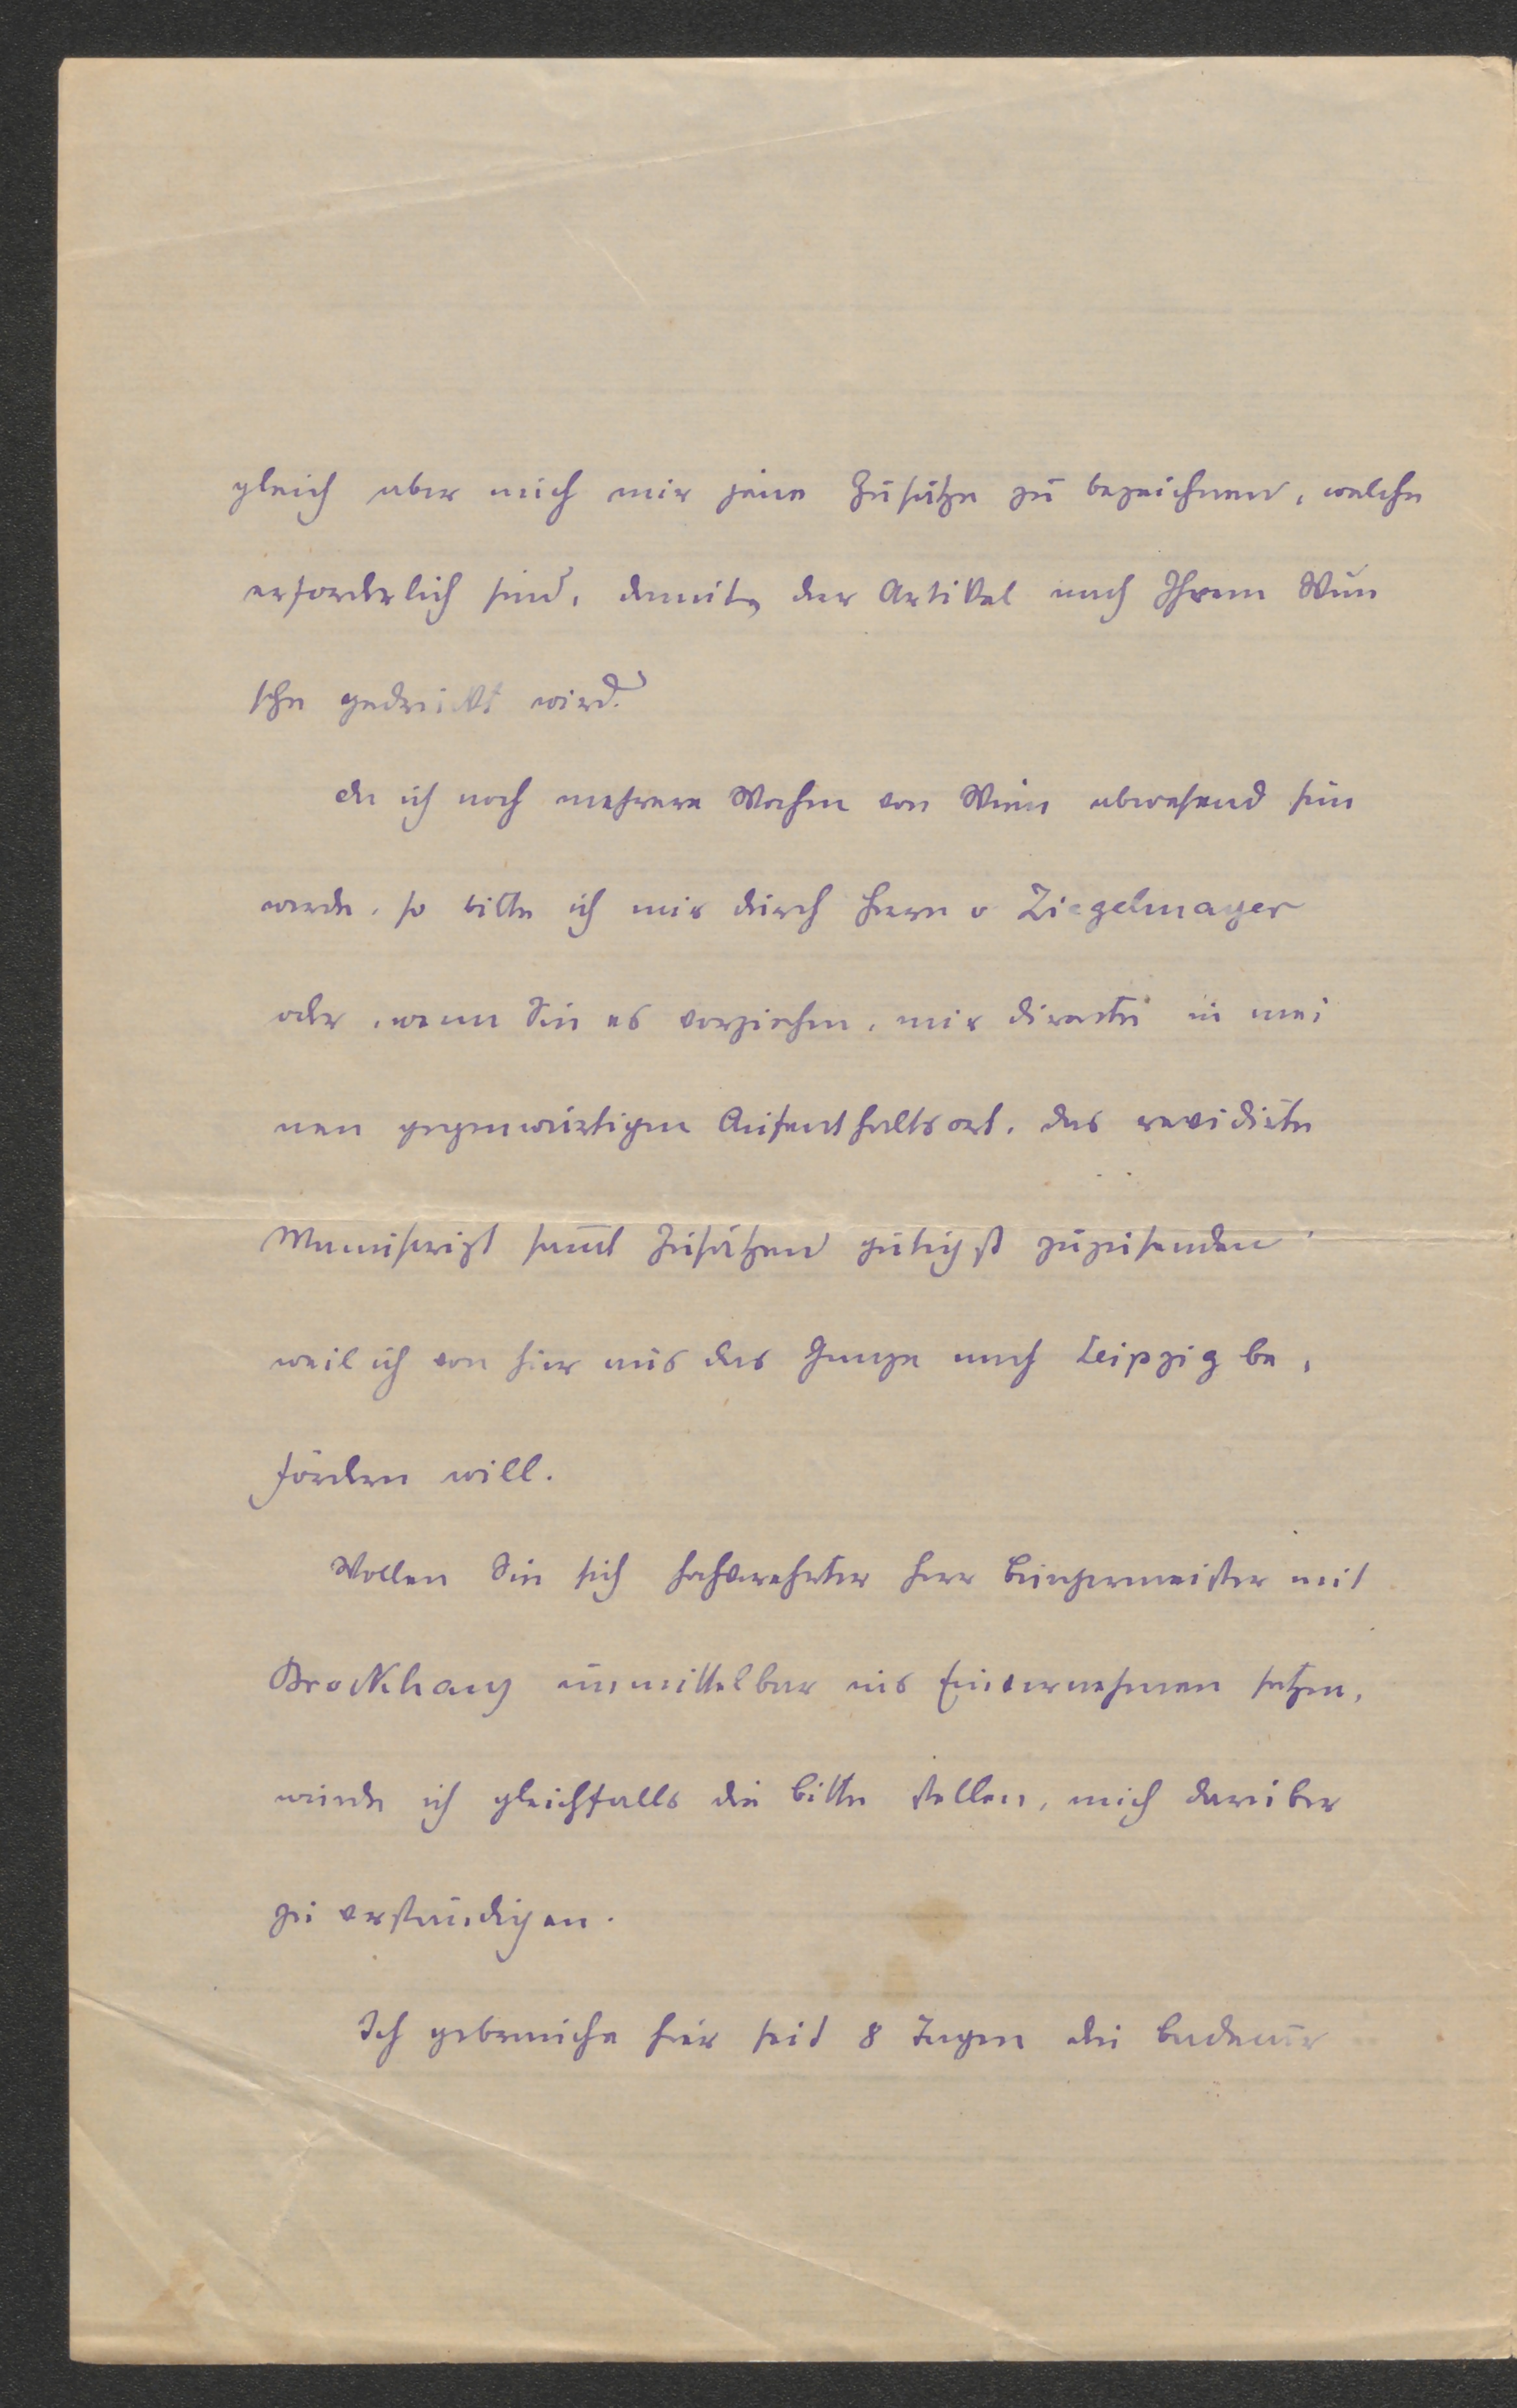 gleich aber auch mir jene Zusätze zu bezeichnen, welche
erforderlich sind, damit der Artikel nach Ihrem Wun
sche gedruckt wird.
Da ich noch mehrere Wochen von Wien abwesend sein
werde, so bitte ich mir durch Herrn v Ziegelmayer
oder, wenn Sie es vorziehen, mir directe in mei
nen gegenwärtigen Aufenthaltsort, das revidirte
Manuscript samt Zusätzen gütigst zuzusenden
weil ich von hier aus das Ganze nach Leipzig be,
fördern will.
Wollen Sie sich hochverehrter Herr Bürgermeister mit
Brockhaus unmittelbar ins Einvernehmen setzen,
würde ich gleichfalls die Bitte stellen, mich darüber
zu verständigen.
Ich gebrauche hier seit 8 Tagen die Badecur